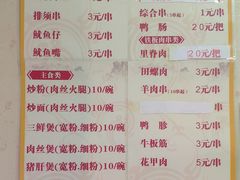 排须串 3元/串
鱿鱼仔 3元/串
鱿鱼嘴 3元/串
主食类
炒粉(肉丝火腿)10/碗
炒面(肉丝火腿)10/碗
三鲜煲(宽粉.细粉)10/碗
肉丝煲(宽粉.细粉)10/碗
猪肝煲(宽粉.细粉)10/碗
综合串(5串起) 1元/串
鸭肠 20元/把
铁板肉串类
里脊肉 20元/把
田螺肉 3元/串
羊肉串(10串起) 2元/串
元/串
鸭胗 3元/串
牛板筋 3元/串
花甲肉 5元/串